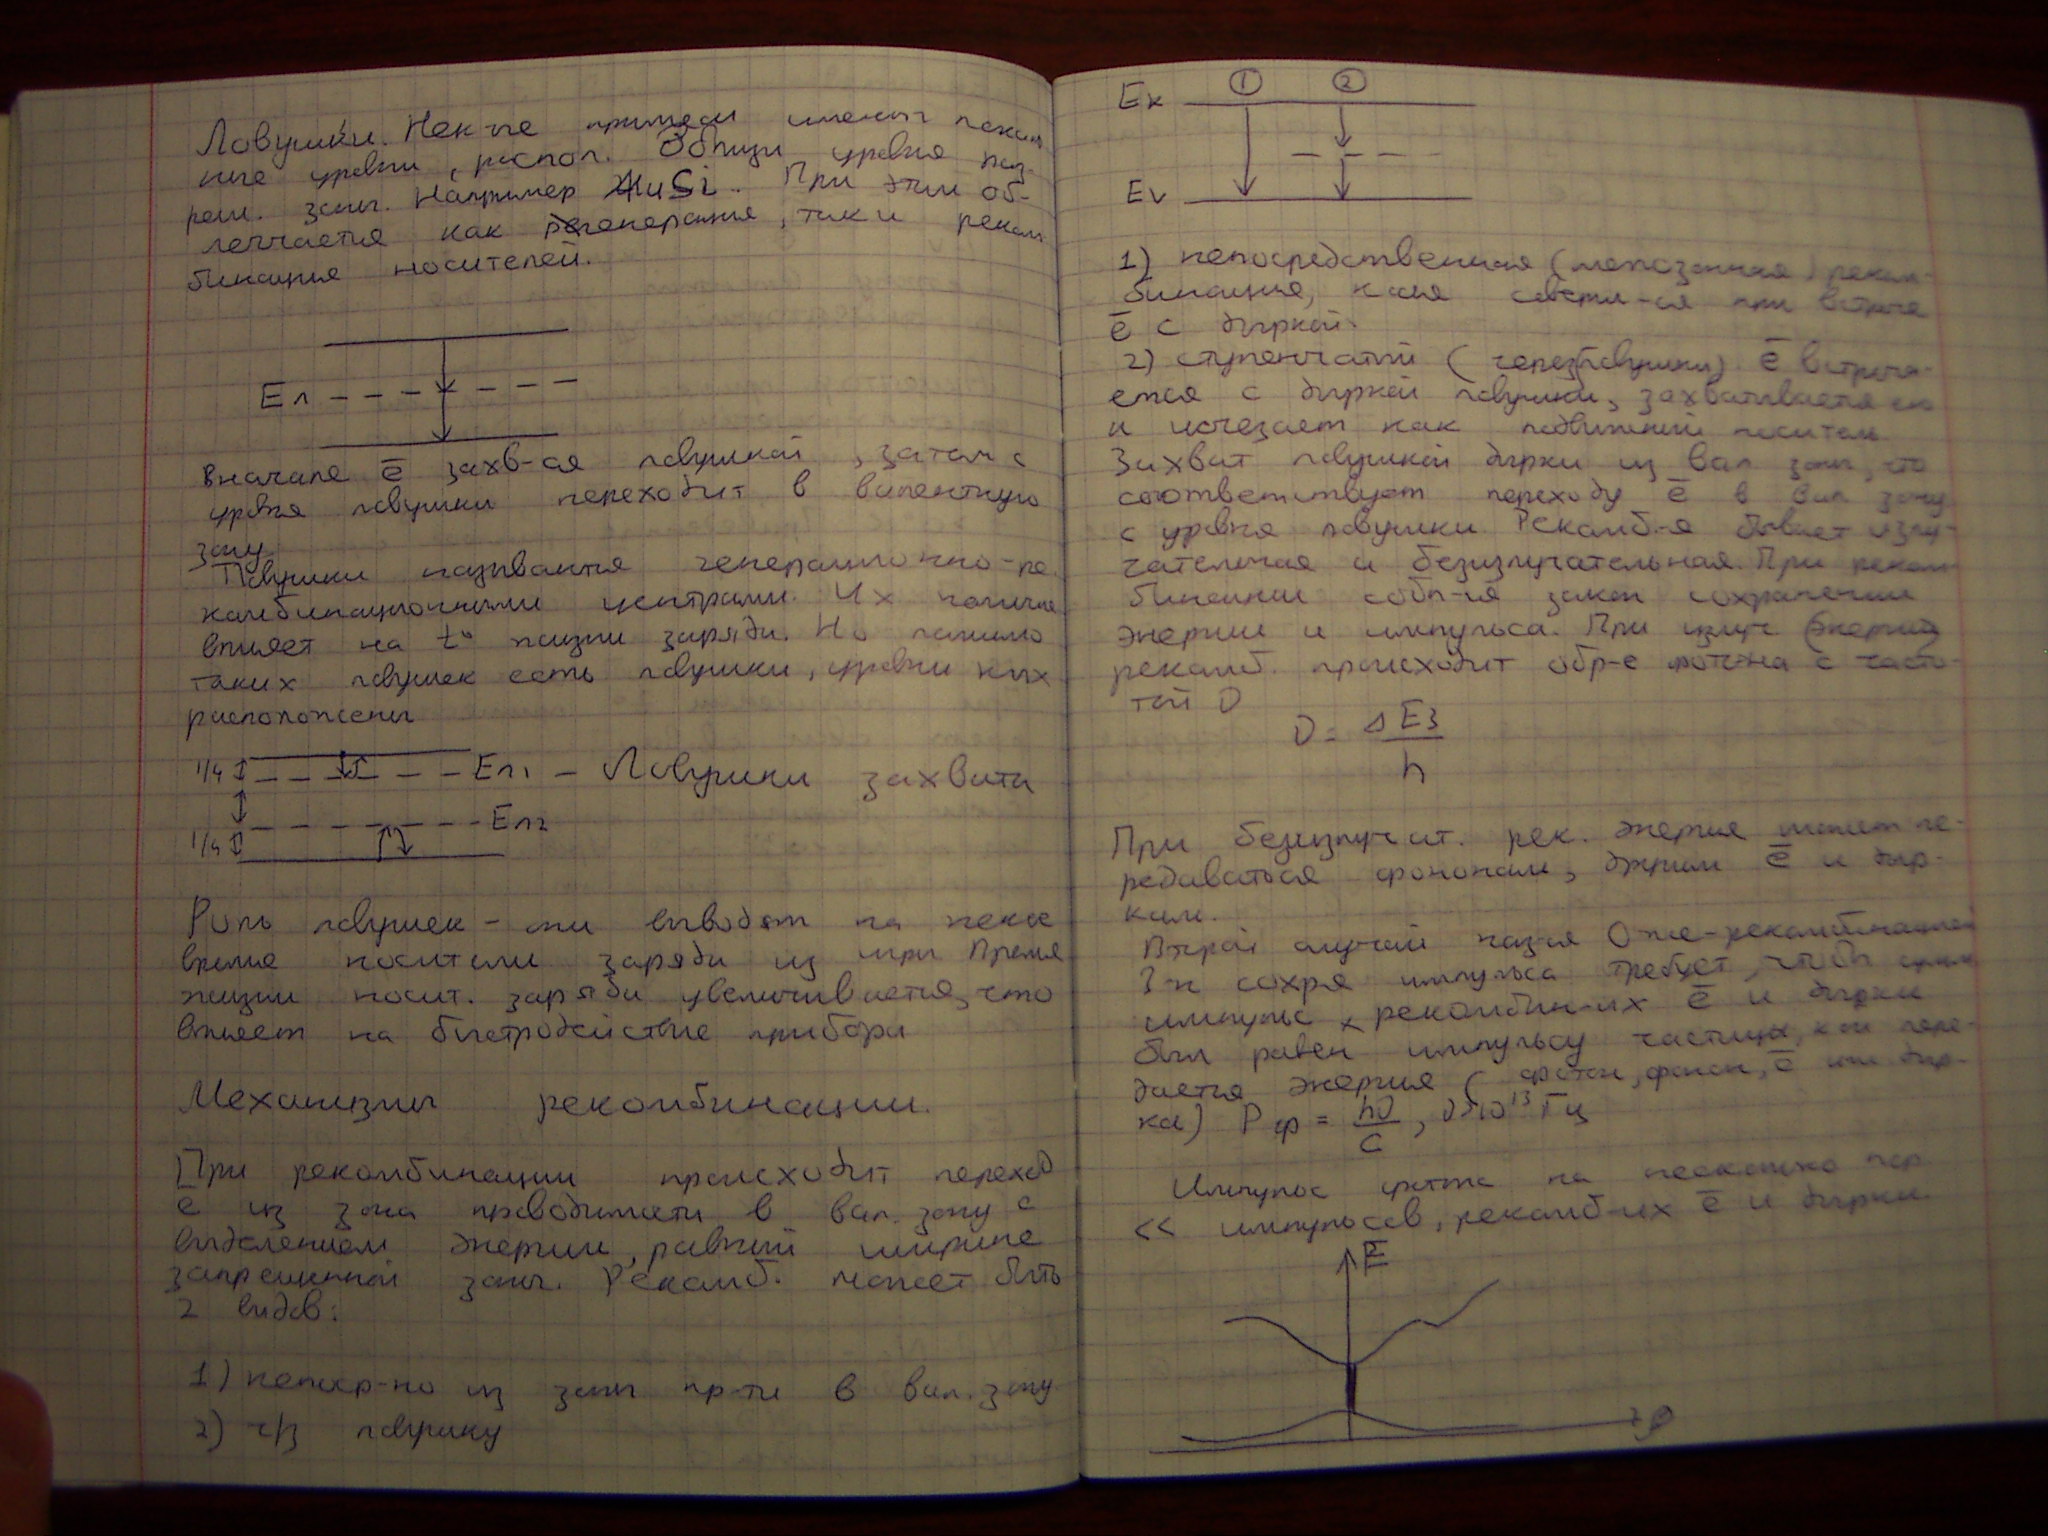 Ловушки. Нек-ые примеси имеют
ные уровни, распол. вблизи уровня
зоны. Например Au Si. При этом об-
легчается как генерация, так и реком
бинация носителей.
Eл
вначале ē захв-ся ловушкой, затем с
уровня ловушки переходит в валентную
зону.
Ловушки называются генерационно-ре
комбинационными центрами. Их наличие
влияет на t° жизни заряда. Но помимо
таких ловушек есть ловушки, уровни ких
расположены
1/4 Eл1 – Ловушки захвата
Eл2
1/4
Роль ловушек – они выводят на некое
время носители заряда из игры Время
жизни носит. заряда увеличивается, что
влияет на быстродействие прибора
Механизмы рекомбинации.
При рекомбинации происходит переход
ē из зоны проводимости в вал. зону с
выделением энергии, равной ширине
запрещенной зоны. Рекомб. может быть
2 видов:
1) непоср-но из зоны пр-ти в вал. зону
2) ч/з ловушку
① ②
Eк
Ev
1) непосредственная (межзонная) реком-
бинация, к-ая соверш-ся при встрече
ē с дыркой.
2) ступенчатый (через ловушки) ē встреча-
ется с дыркой ловушки, захватывается ею
и исчезает как подвижный носитель
Захват ловушкой дырки из вал зоны, что
соответствует переходу ē в вал зону
с уровня ловушки Рекомб-я бывает излу-
чательная и безизлучательная. При реком-
бинации собл-ся закон сохранения
энергии и импульса. При излуч (энергия)
рекомб. происходит обр-е фотона с часто-
той υ
υ = ΔEз / h
При безизлучат. рек. энергия может пе-
редаваться фононам, другим ē и дыр-
кам.
Второй случай наз-ся Оже-рекомбинацией
З-н сохр-я импульса требует, чтоб сумм
импульс рекомбин-их ē и дырки
был равен импульсу частицы, к-ой пере-
дается энергия (фотон, фонон, ē или дыр-
ка) Pф = hυ / c, υ 10¹³ Гц
Импульс фотона на несколько пор
<< импульсов, рекомб-их ē и дырки.
E
p